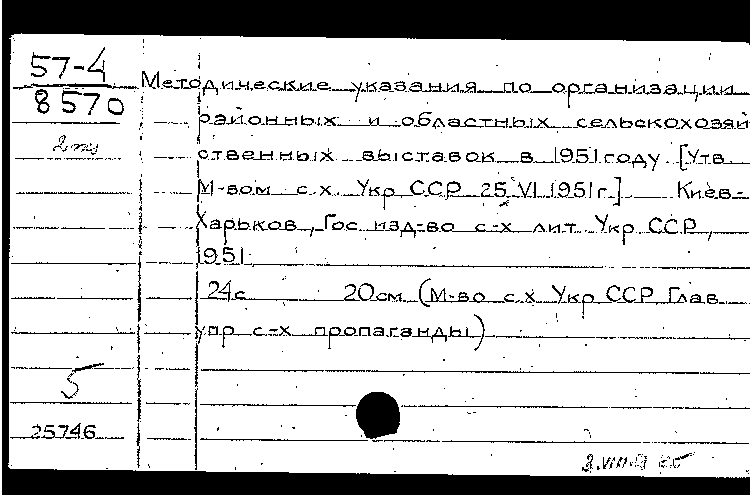 57-4
8570
Методические указания по организации
районных и областных сельскохозяй
ственных выставок в 1951 году [Утв
М-вом с.х. Укр ССР 25 VI 1951г.] Киев-
Харьков, Гос изд-во с-х лит Укр ССР,
1951
24с 20см (М-во с.х Укр ССР Глав
упр с-х пропаганды)
5
25746